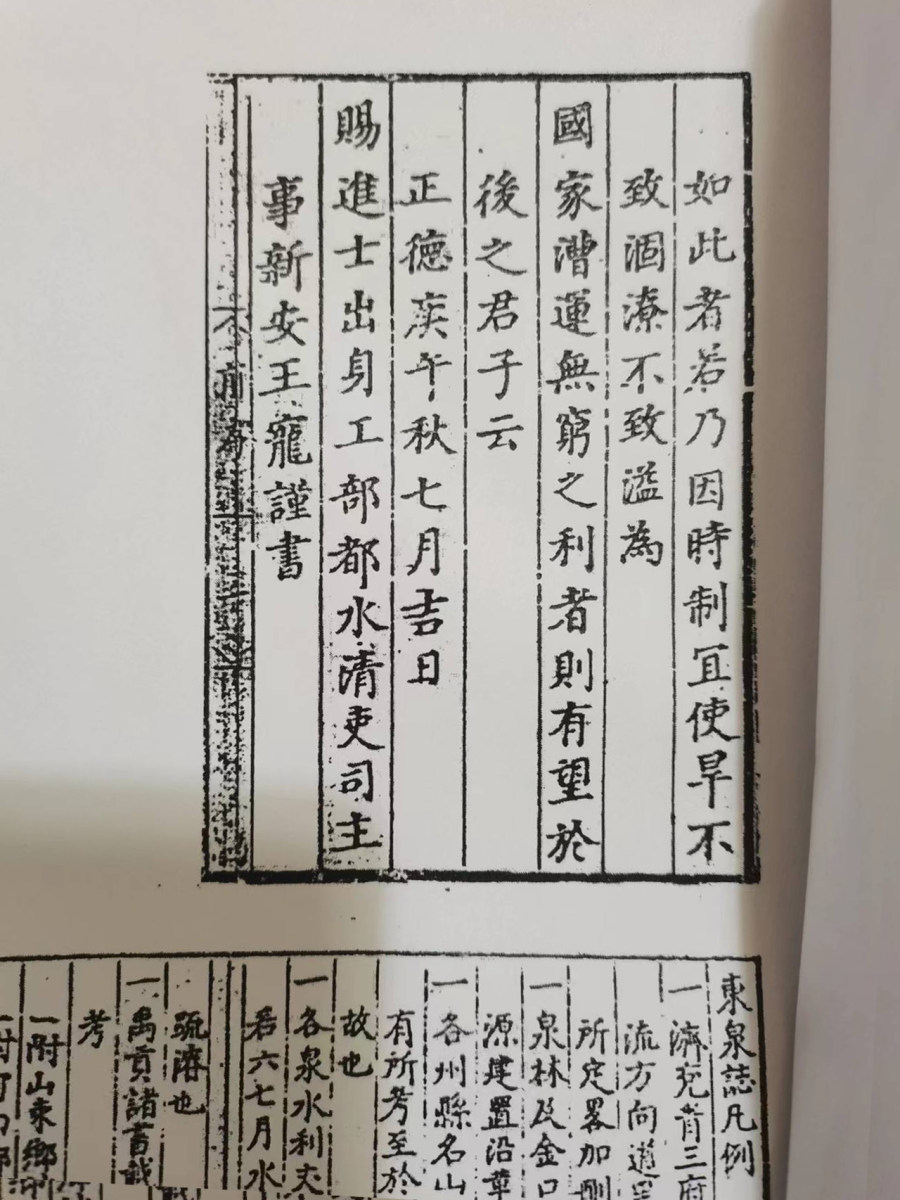 如此者若乃因時制宜使旱不
致涸潦不致溢為
國家漕運無窮之利者則有望於
後之君子云
正德庚午秋七月吉日
賜進士出身工部都水清吏司主
事新安王寵謹書
東泉誌凡例
一濟兖青三府
流方向道里
所定畧加刪
一泉林及金口
源建置沿革
一各州縣名山
有所考至於
故也
一各泉水利夫
若六七月水
疏濬也
一禹貢諸書載
考
一附山東鄉
一附